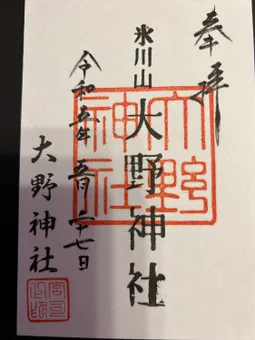 奉拝
氷川山
大野神社
大野神社
令和五年 五月二十七日
大野神社